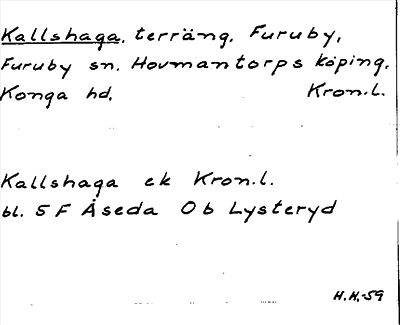 Kallshaga, terräng, Furuby,
Furuby sn. Hovmantorps köping,
Konga hd, Kron.l.
Kallshaga ek Kron.l.
bl. 5 F Åseda 0 b Lysteryd
H.H.-59